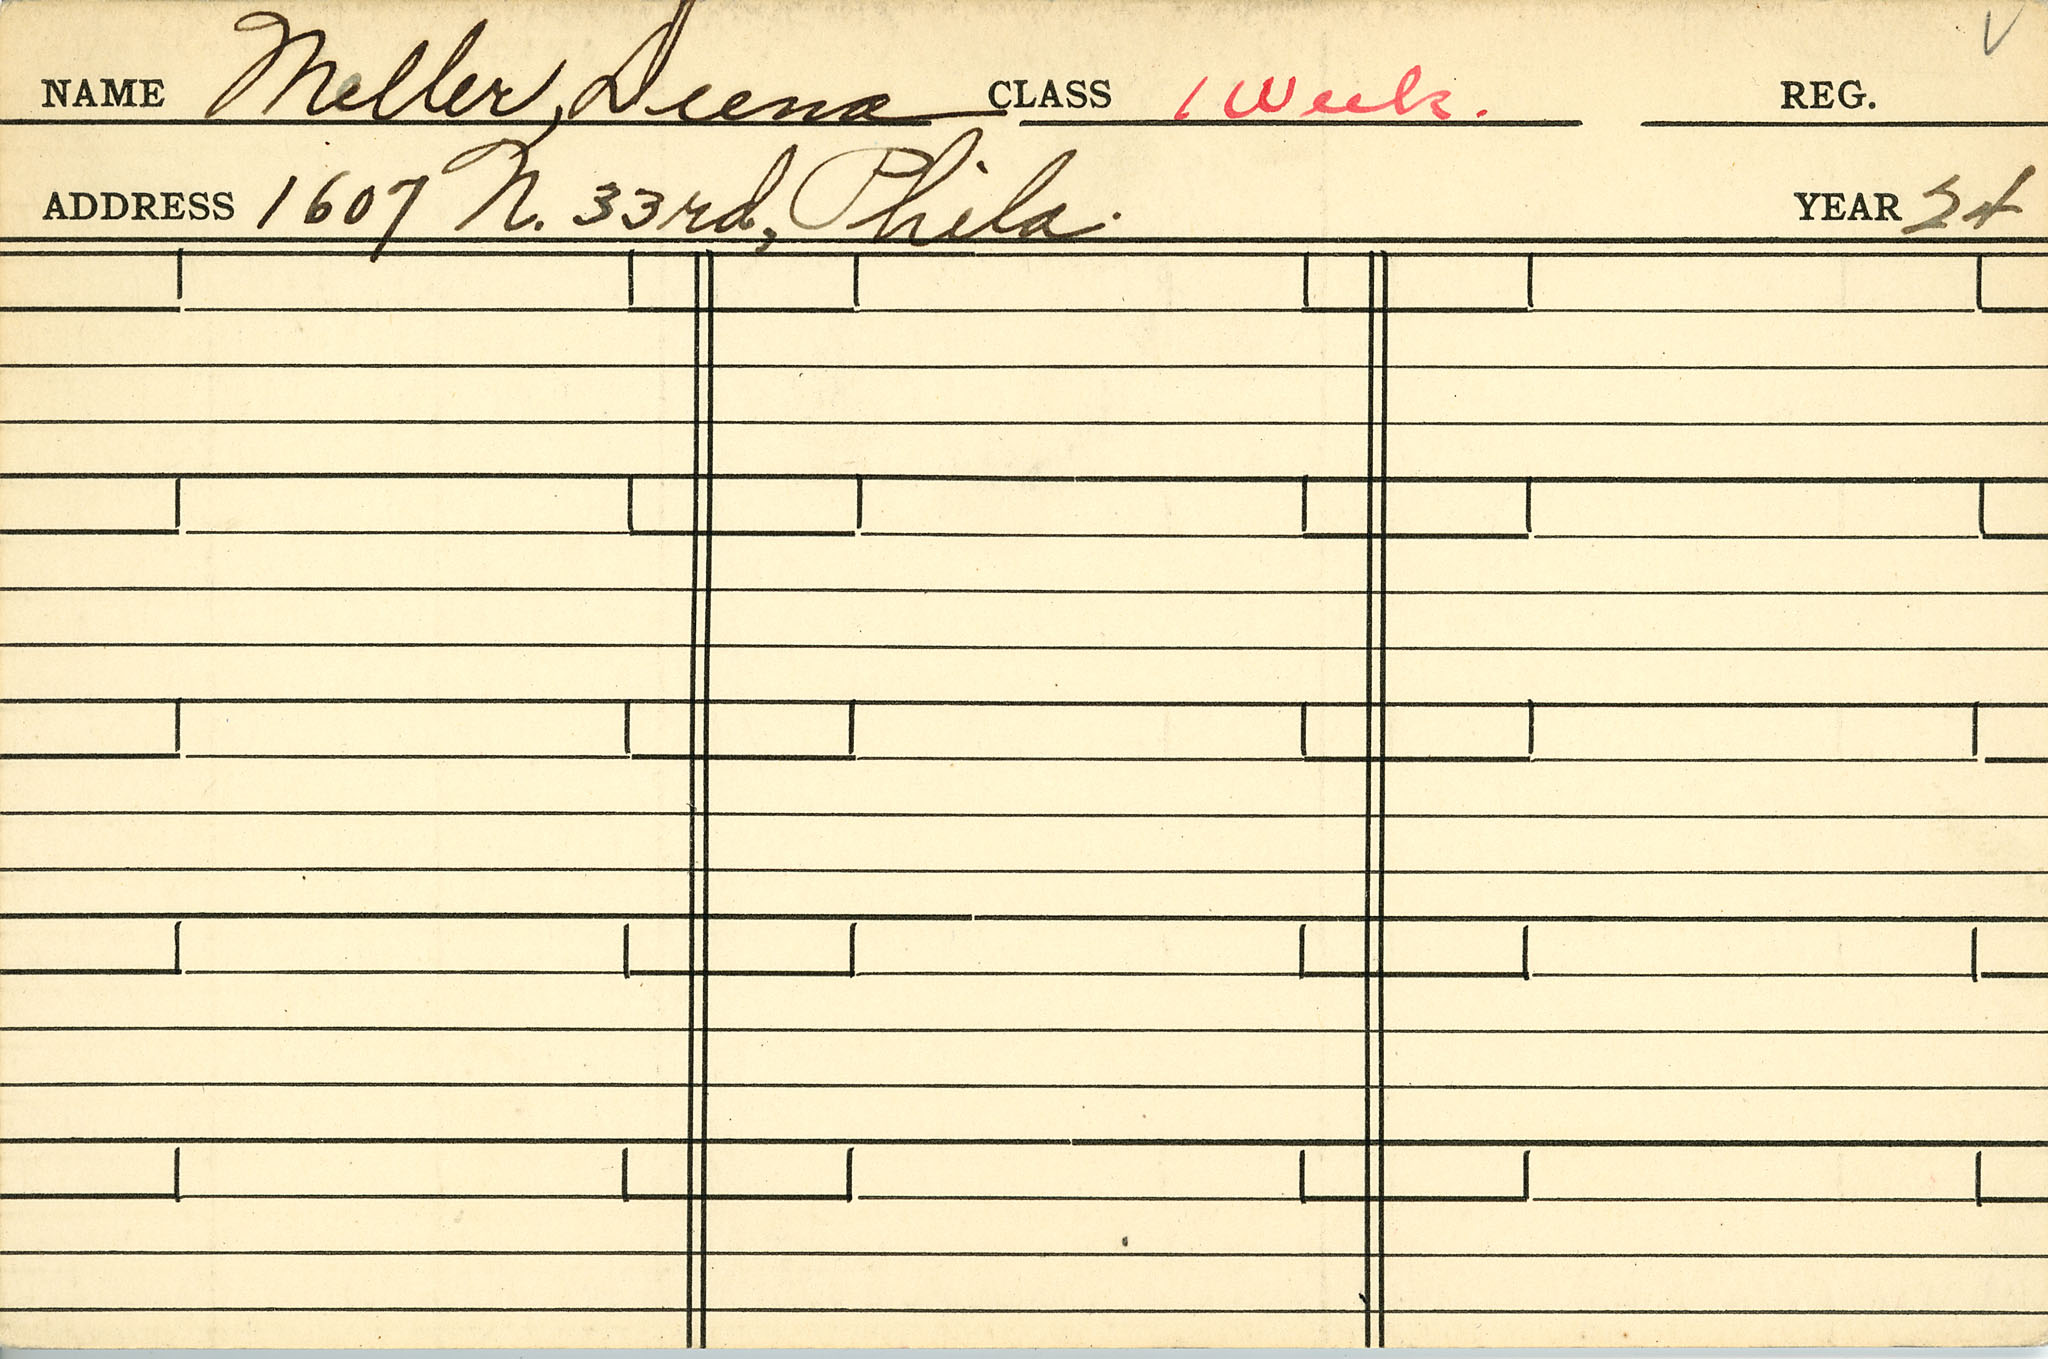 NAME Meller, Deena CLASS 1 Week. REG.
ADDRESS 1607 N. 33rd, Phila. YEAR 24